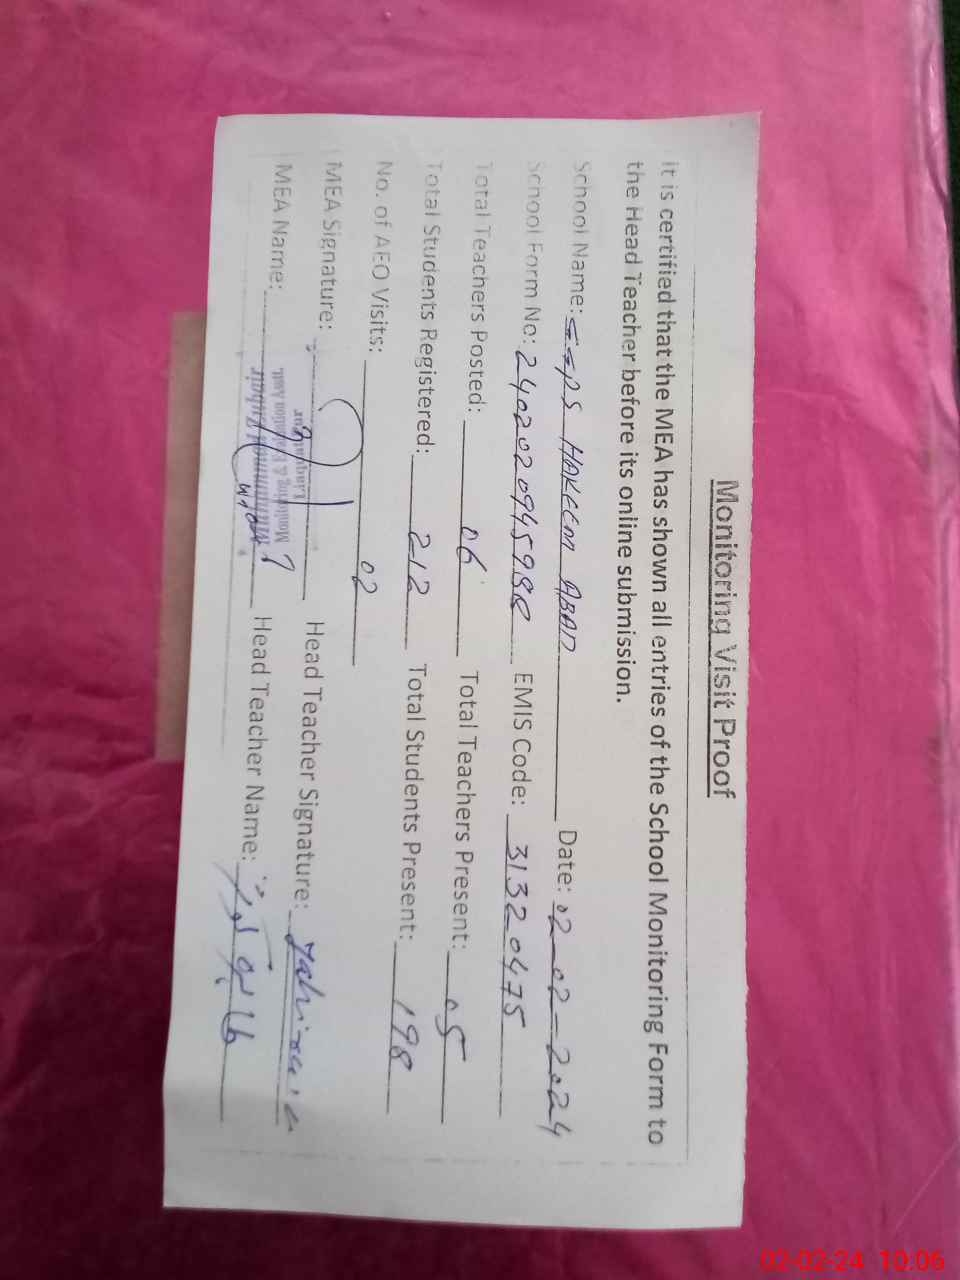 Monitoring Visit Proof
It is certified that the MEA has shown all entries of the School Monitoring Form to
the Head Teacher before its online submission.
School Name: GGPS HAKEEM ABAD Date: 02-02-2024
School Form No: EMIS Code: 31320475
Total Teachers Posted: 06 Total Teachers Present: 05
Total Students Registered: 212 Total Students Present: 198
No. of AEO Visits: 02
MEA Signature: Head Teacher Signature:
MEA Name: Head Teacher Name:
Monitoring & Evaluation Asstt.
02-02-24 10:06